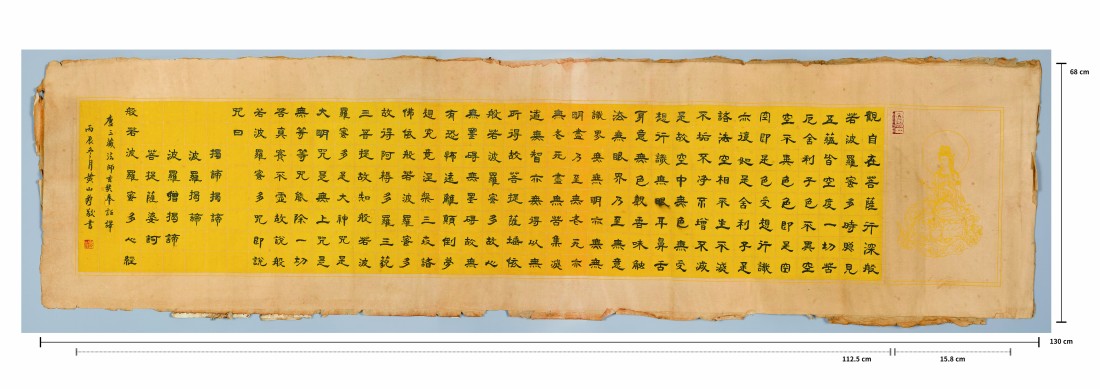 觀自在菩薩行深般
若波羅蜜多時照見
五蘊皆空度一切苦
厄舍利子色不異空
空不異色色即是空
空即是色受想行識
亦復如是舍利子是
諸法空相不生不滅
不垢不淨不增不減
是故空中無色無受
想行識無眼耳鼻舌
身意無色聲香味觸
法無眼界乃至無意
識界無無明亦無無
明盡乃至無老死亦
無老死盡無苦集滅
道無智亦無得以無
所得故菩提薩埵依
般若波羅蜜多故心
無罣礙無罣礙故無
有恐怖遠離顛倒夢
想究竟涅槃三世諸
佛依般若波羅蜜多
故得阿耨多羅三藐
三菩提故知般若波
羅蜜多是大神咒是
大明咒是無上咒是
無等等咒能除一切
苦真實不虛故說般
若波羅蜜多咒即說
咒曰
揭諦揭諦
波羅揭諦
波羅僧揭諦
菩提薩婆訶
般若波羅蜜多心經
唐三藏法師玄奘奉詔譯
丙辰月黃山壽敬書
68 cm
130 cm
112.5 cm
15.8 cm